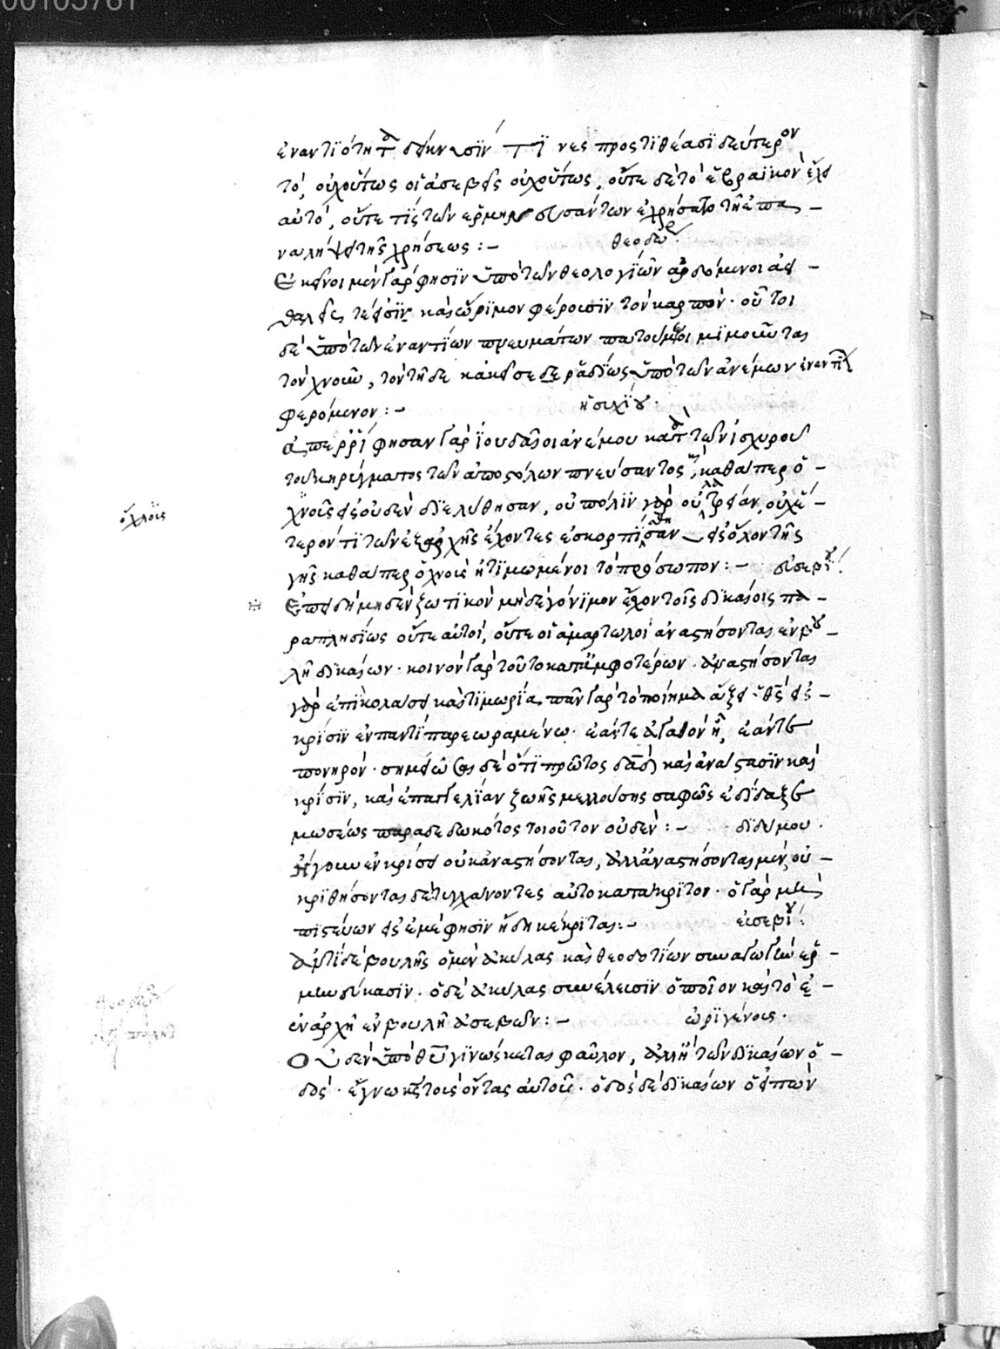 00105761
ἐναντιότητ δείκνυσιν τινὲς προστιθέασι δεύτερον
τό, οὐχ οὕτως οἱ ἀσεβεῖς οὐχ οὕτως, οὔτε δὲ τὸ ἑβραϊκὸν ἔχει
αὐτό, οὔτε τίς τῶν ἑρμηνευσάντων ἐχρήσατο τῇ ἐπα –
ναλήψει τῆς χρήσεως : –
θεοδώρ
Ἐκεῖνοι μὲν γάρ φησιν ὑπὸ τῶν θεολογιῶν ἀρδόμενοι ἀει –
θαλεῖς τέ εἰσϊν καὶ ὥριμον φέρουσιν τὸν καρπόν · οὗτοι
δὲ ὑπὸ τῶν ἐναντίων πνευμάτων μιμοῦνται
τὸν χνοῦν, τὸν τῇδε κἀκεῖσε ῥαδίως ὑπὸ τῶν ἀνέμων
φερόμενον : –
ἡσυχίου ·
Ἀπερρίφησαν γὰρ ἰουδαῖοι ἀνέμου κατ τῶν ἰσχυροῦ
τοῦ κηρύγματος τῶν ἀποστόλων πνεύσαντος, καθάπερ ὁ –
χνοῦς εἰς οὐδὲν διελύθησαν, οὐ πόλιν γὰρ οὐ πατρίδαν, οὐχ ἕ –
ὄχλοις
τερόν τι τῶν ἐξ ἀρχῆς ἔχοντες ἐσκορπίσθησαν
γῆς καθάπερ ὁ χνοῦς ἠτιμωμένοι τὸ πρόσωπον : –
εὐσεβίου
Ἐπειδὴ μηδὲν ζωτικὸν μηδὲ γόνιμον ἔχον τοῖς δικαίοις πα –
ραπλησίως οὔτε αὐτοί, οὔτε οἱ ἁμαρτωλοὶ ἀναστήσονται ἐν βου –
λῇ δικαίων · κοινὸν γὰρ τοῦτο κατ ἀμφοτέρων · ἀναστήσονται
γὰρ ἐπὶ κολάσει καὶ τιμωρία, πᾶν γὰρ τὸ ποίημα ἄξει ὁ θς εἰς –
κρίσιν ἐν παντὶ παρεωραμένω · ἐάν τε ἀγαθὸν ᾖ, ἐάν τε
πονηρόν · σημειῶ δὲ ὅτι πρῶτος δαδ καὶ ἀνάστασιν καὶ
κρίσιν, καὶ ἐπαγγελίαν ζωῆς μελλούσης σαφῶς ἐδίδαξε
μωσέως παραδεδωκότος τοιοῦτον οὐδέν : –
διδύμου ·
Ἤγουν ἐν κρίσει οὐκ ἀναστήσονται, ἀλλ ἀναστήσονται μέν, οὐ –
κριθήσονται δὲ τυγχάνοντες αὐτοκατάκριτοι · ὁ γὰρ μὴ
πιστεύων εἰς ἐμέ φησιν ἤδη κέκριται : –
εὐσεβίου
Ἀντὶ δὲ βουλῆς ὁ μὲν ἀκύλας καὶ θεοδοτίων συναγωγὴν ἑρ –
μηνεύκασιν · ὁ δὲ ἀκύλας συνέλευσιν ὁποῖον καὶ τὸ ἐ –
ἐν ἀρχῇ ἐν βουλῇ ἀσεβῶν : –
ὠριγένους ·
Οὐδὲν ὑπὸ θυ γινώσκεται φαῦλον, ἀλλ ἢ τῶν δικαίων ὁ –
δός · ἔγνω κς τοὺς ὄντας αὐτοῦ · ὁδὸς δὲ δικαίων ὁ εἰπών